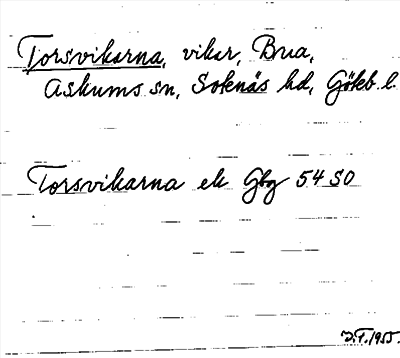 Torsvikarna, vikar, Bua,
Askums sn, Sotenäs hd, Göteb. l.
Torsvikarna ek Gbg 54 SO
D.F. 1955.